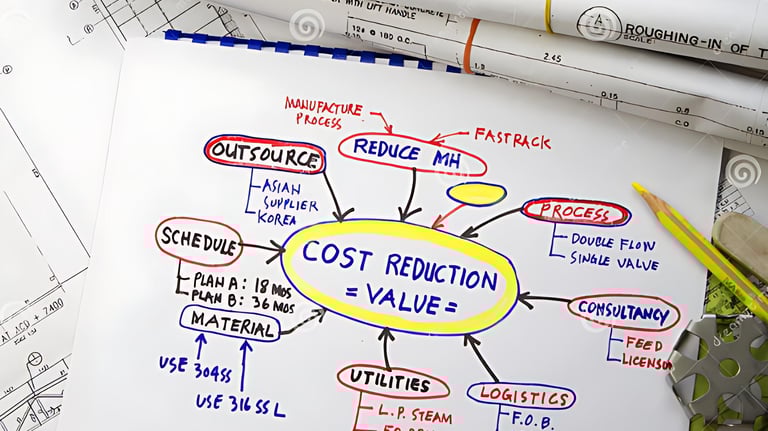 WITH LIFT HANDLE
12φ @ 180 O.C.
A
ROUGHING-IN OF T
SCALE:
2.45
0.15
0.15
MANUFACTURE
PROCESS
FASTRACK
REDUCE MH
OUTSOURCE
ASIAN
SUPPLIER
KOREA
PROCESS
DOUBLE FLOW
SINGLE VALUE
SCHEDULE
PLAN A: 18 MOS
PLAN B: 36 MOS
COST REDUCTION
= VALUE =
CONSULTANCY
FEED
LICENSO
MATERIAL
USE 304SS
USE 316SSL
UTILITIES
L.P. STEAM
LOGISTICS
F.O.B.